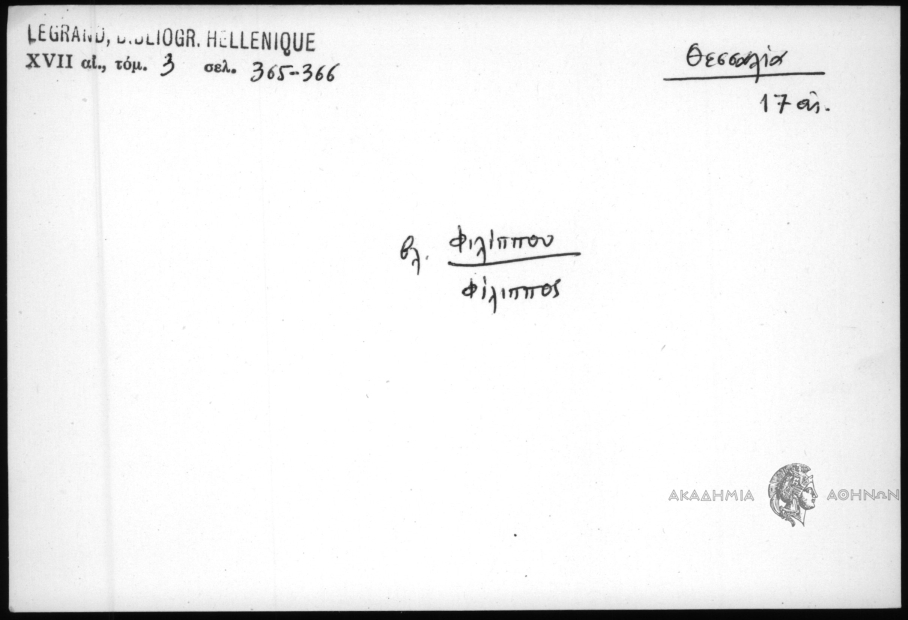 LEGRAND, BIBLIOGR. HELLENIQUE
XVII αἰ., τόμ. 3 σελ. 365-366
Θεσσαλία
17 αἰ.
βλ. Φιλίππου
Φίλιππος
ΑΚΑΔΗΜΙΑ ΑΘΗΝΩΝ